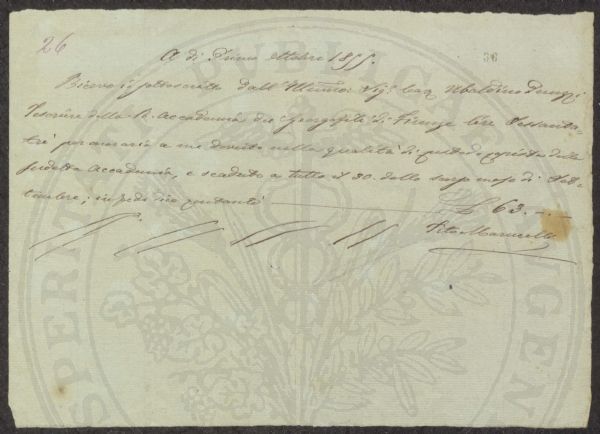 26
36
A dì Primo Ottobre 1855.
Ricevo io sottoscritto dall' Illmo: Sig.e Cav. Ubaldino Peruzzi
Tesoriere della R. Accademia dei Georgofili di Firenze lire Sessanta-
tré per onorario a me dovuto nella qualità di custode copista della
suddetta Accademia, e scaduto a tutto il 30. dello scorso mese di Set-
tembre; in pedi dico contanti £ 63.-.-
Tito Marucelli
PUBLICA